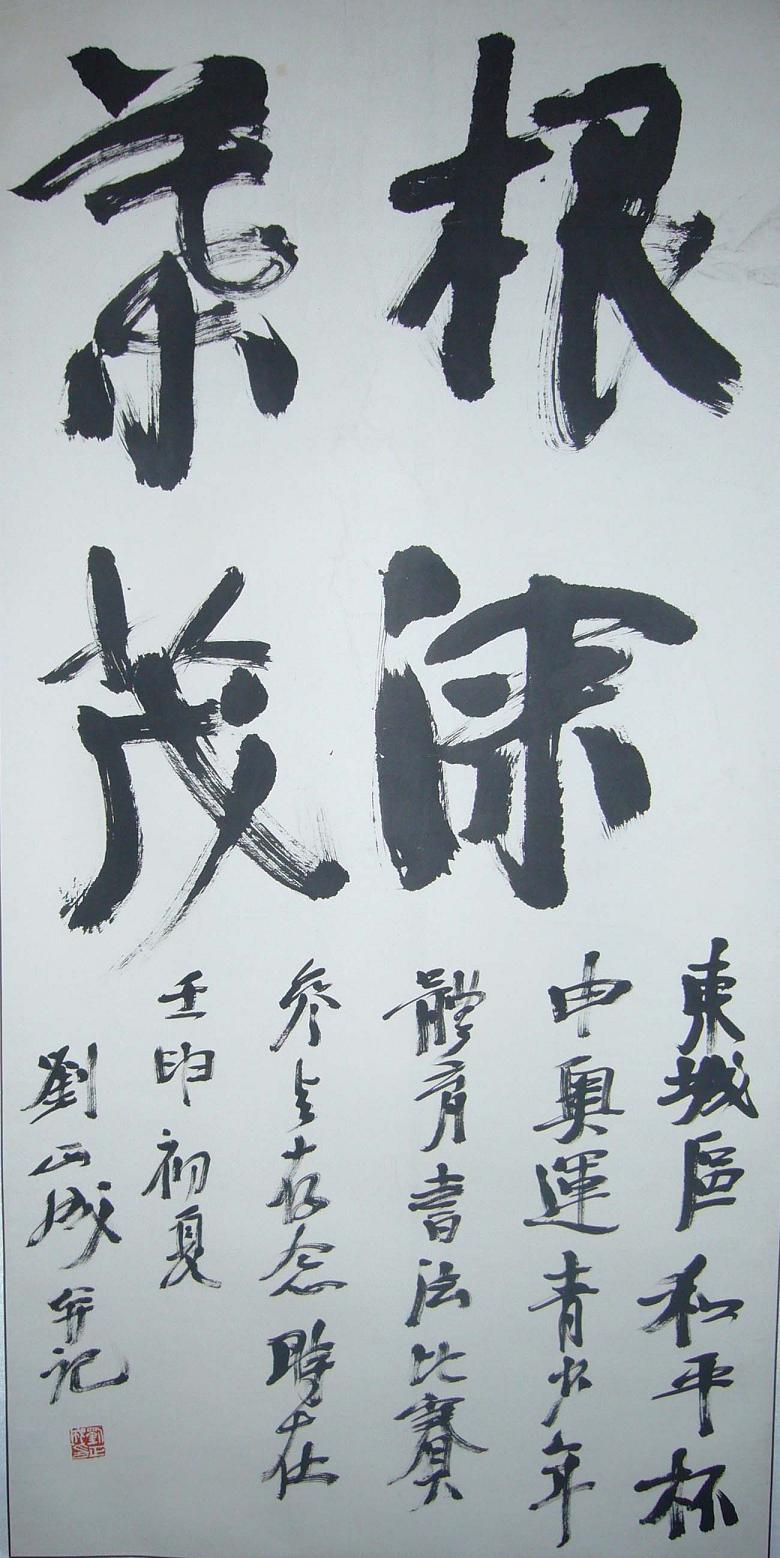 根深
葉茂
東城區和平杯
申奧運青少年
體育書法比賽
参与存念時在
壬申初夏
劉正成并記
劉正成印